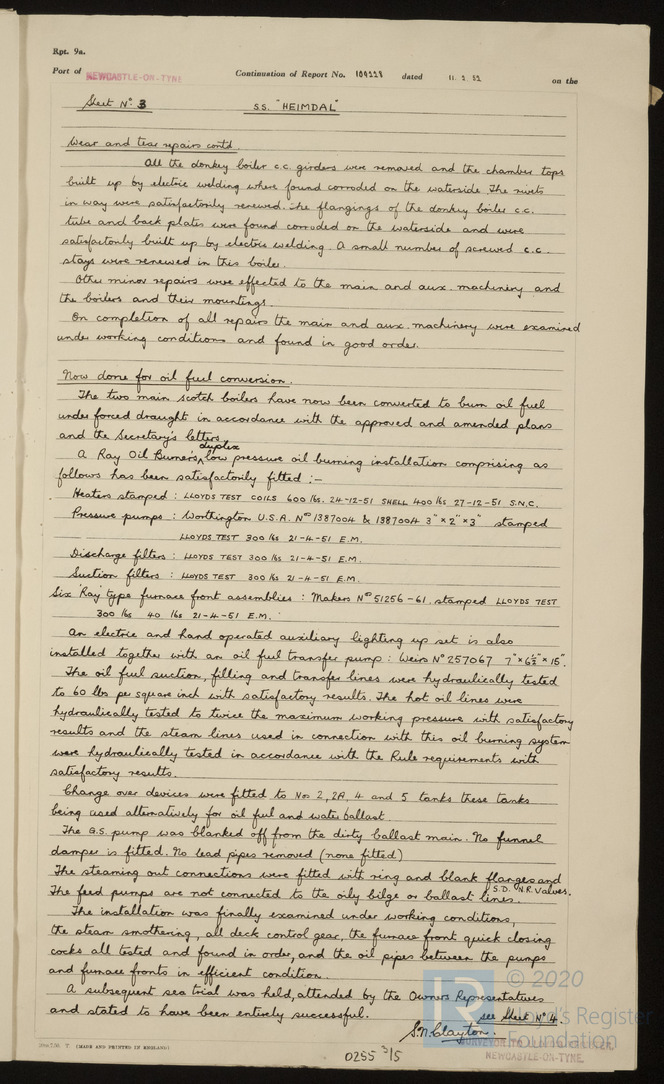 Rpt. 9a.
Port of NEWCASTLE-ON-TYNE Continuation of Report No. 109228 dated 11. 2. 52 on the
Sheet No. 3 S.S. "HEIMDAL"
Wear and tear repairs contd
All the donkey boiler c.c. girders were removed and the chamber tops
built up by electric welding where found corroded on the waterside. The rivets
in way were satisfactorily renewed. The flangings of the donkey boiler c.c.
tube and back plates were found corroded on the waterside and were
satisfactorily built up by electric welding. A small number of screwed c.c.
stays were renewed in this boiler.
Other minor repairs were effected to the main and aux. machinery and
the boilers and their mountings.
On completion of all repairs the main and aux. machinery were examined
under working conditions and found in good order.
Now done for oil fuel conversion.
The two main scotch boilers have now been converted to burn oil fuel
under forced draught in accordance with the approved and amended plans
and the Secretary's letters.
A Ray Oil Burners duplex low pressure oil burning installation comprising as
follows has been satisfactorily fitted :-
Heaters stamped : LLOYDS TEST COILS 600 lbs. 24-12-51 SHELL 400 lbs 27-12-51 S.N.C.
Pressure pumps : Worthington U.S.A. Nos 1387004 & 1387004 3" x 2" x 3" stamped
LLOYDS TEST 300 lbs 21-4-51 E.M.
Discharge filters : LLOYDS TEST 300 lbs 21-4-51 E.M.
Suction filters : LLOYDS TEST 300 lbs 21-4-51 E.M.
Six 'Ray' type furnace front assemblies : Makers Nos 51256-61. stamped LLOYDS TEST
300 lbs 40 lbs 21-4-51 E.M.
An electric and hand operated auxiliary lighting up set is also
installed together with an oil fuel transfer pump : Weirs No 257067 7" x 6½" x 15".
The oil fuel suction, filling and transfer lines were hydraulically tested
to 60 lbs per square inch with satisfactory results. The hot oil lines were
hydraulically tested to twice the maximum working pressure with satisfactory
results and the steam lines used in connection with this oil burning system
were hydraulically tested in accordance with the Rule requirements with
satisfactory results.
Change over devices were fitted to Nos 2, 2A, 4 and 5 tanks these tanks
being used alternatively for oil fuel and water ballast.
The G.S. pump was blanked off from the dirty ballast main. No funnel
damper is fitted. No lead pipes removed (none fitted)
The steaming out connections were fitted with ring and blank flanges and
S.D. N.R. Valves.
The feed pumps are not connected to the oily bilge or ballast lines.
The installation was finally examined under working conditions,
the steam smothering, all deck control gear, the furnace front quick closing
cocks all tested and found in order, and the oil pipes between the pumps
and furnace fronts in efficient condition.
A subsequent sea trial was held, attended by the Owners Representatives
and stated to have been entirely successful. see Sheet No 4.
S.N. Clayton.
NEWCASTLE-ON-TYNE.
(MADE AND PRINTED IN ENGLAND)
0255 3/5
© 2020
Lloyd's Register
Foundation